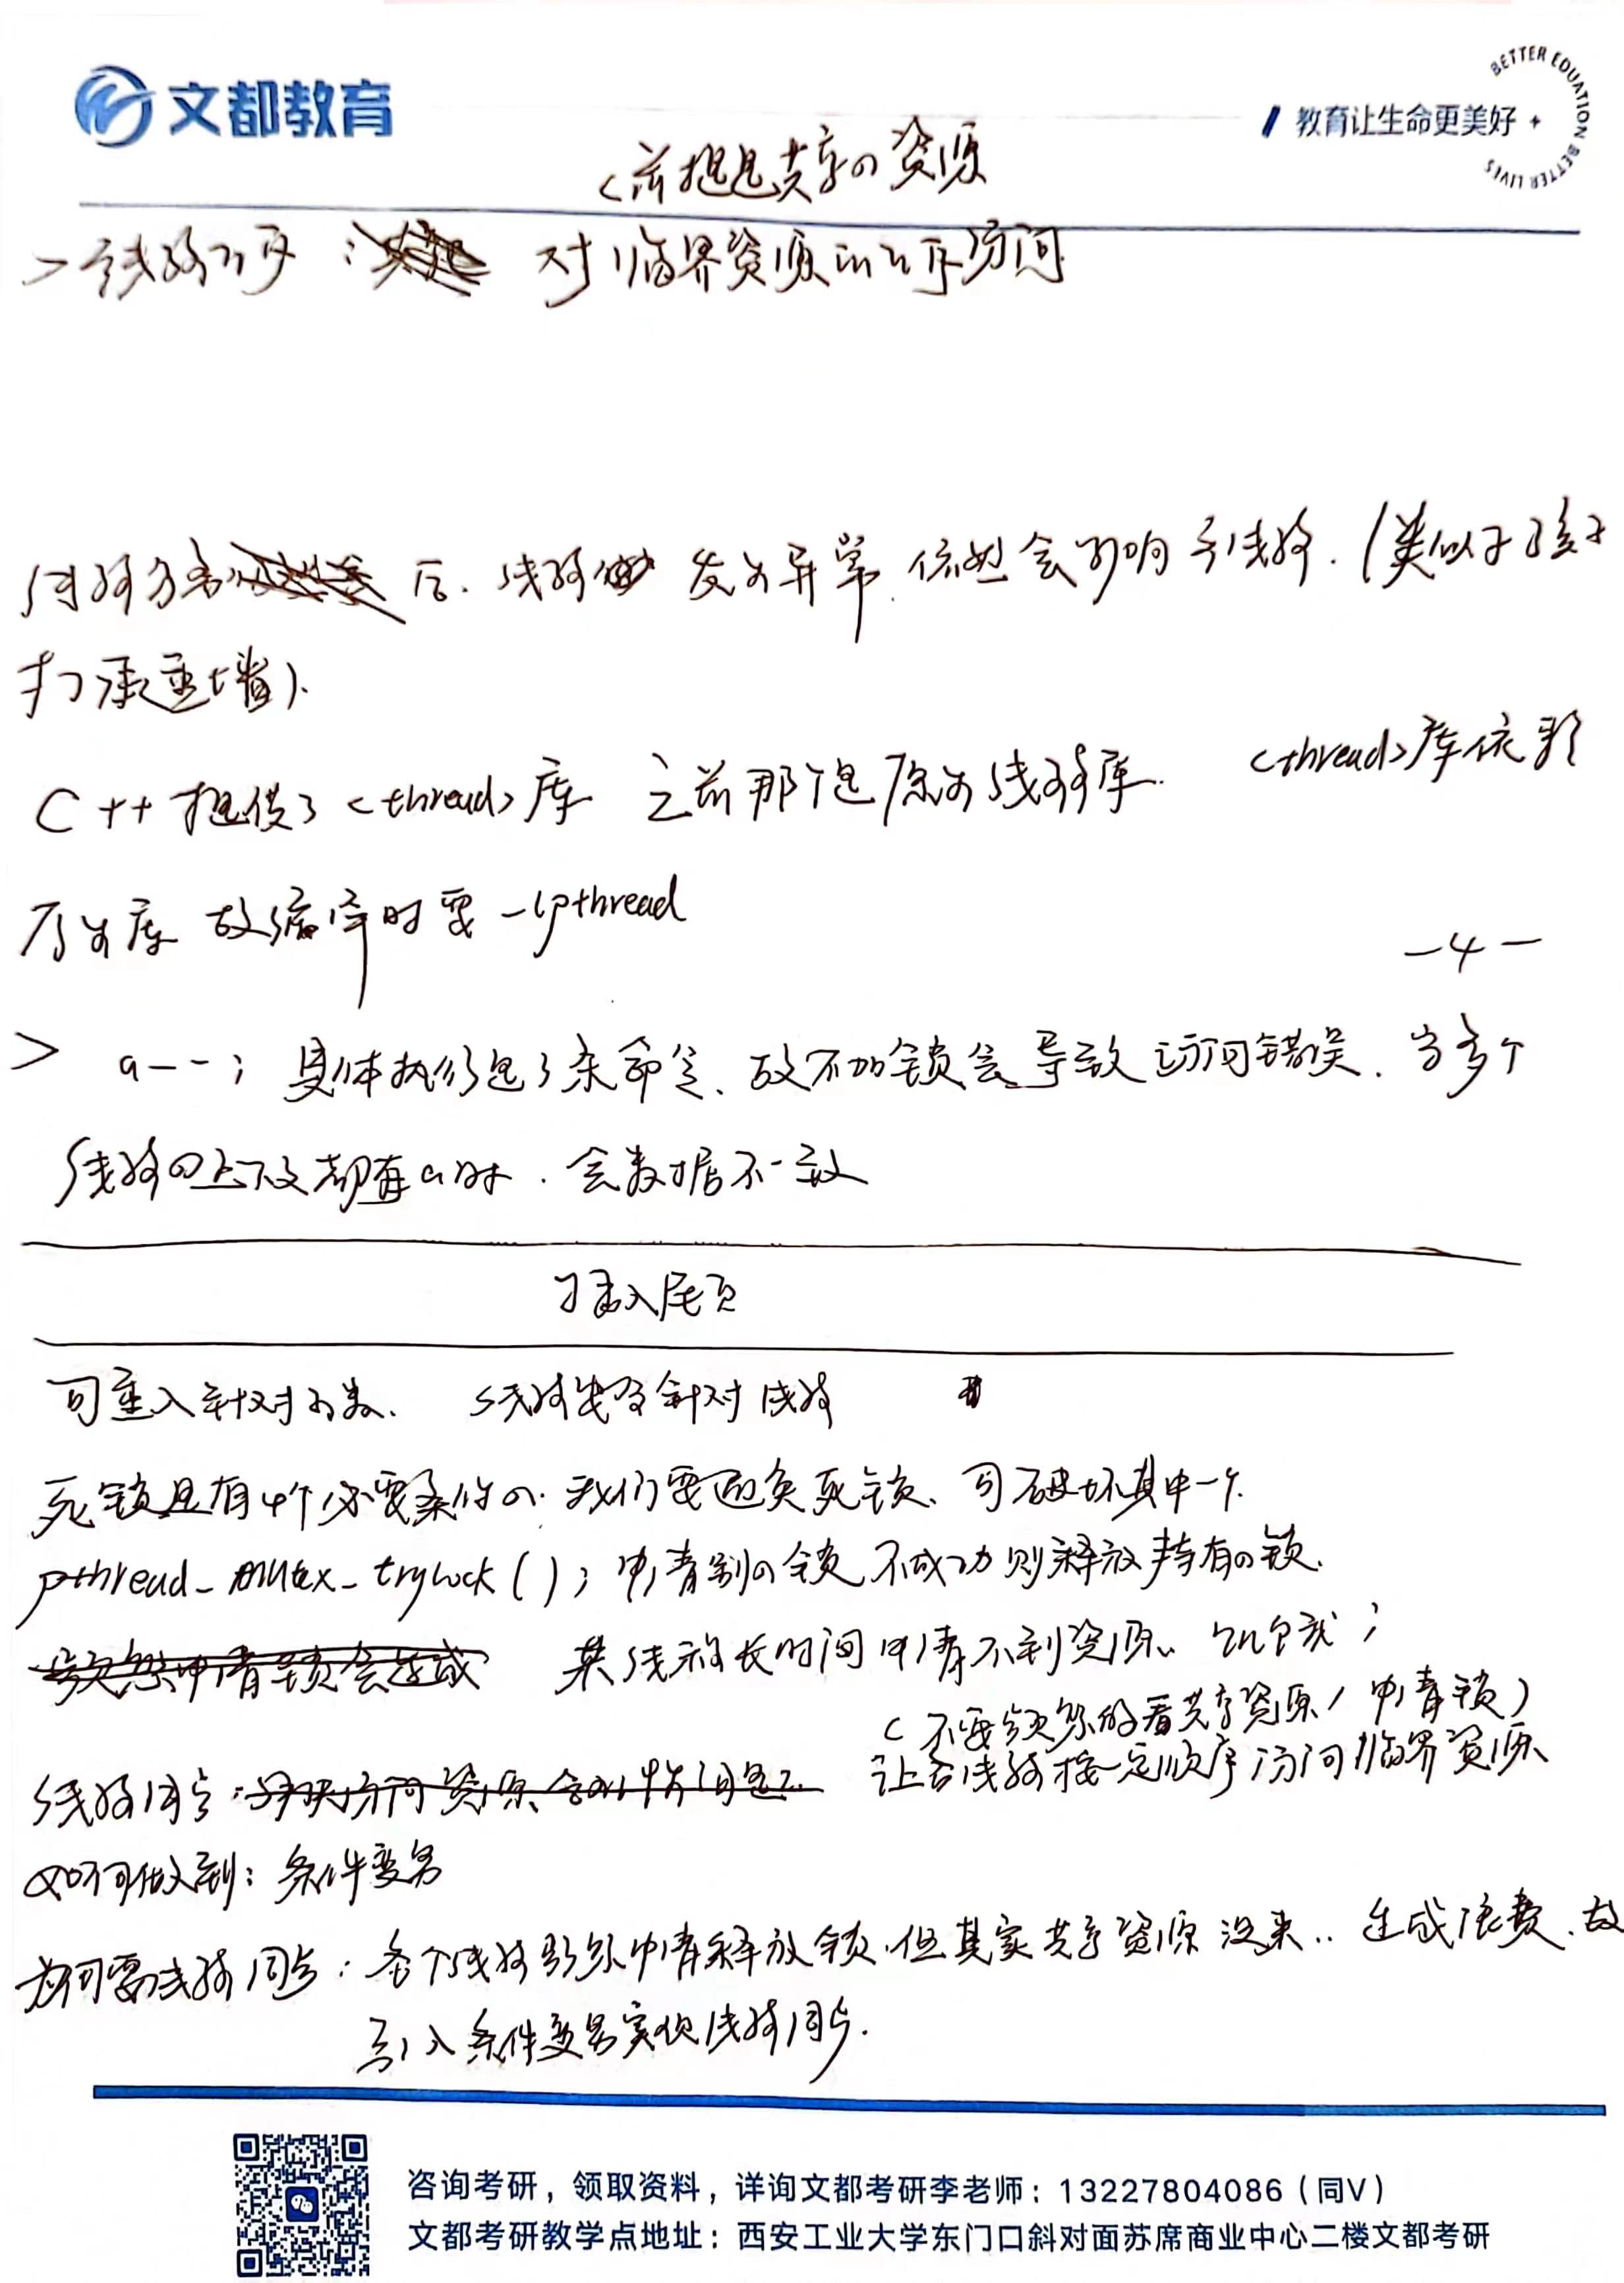 文都教育
教育让生命更美好
BETTER EDUATION BETTER LIVES
(前提是共享の资源
>线程互斥: 对临界资源的互斥访问
线程分离 后. 线程 发生异常 依然会影响主线程. (类似于孩子
打承重墙).
C++提供了<thread>库 之前那个是原生线程库. <thread>库依赖
原生库 故编译时要 -lpthread
-4-
> a--; 具体执行是3条命令、故不加锁会导致访问错误. 当多个
线程の上下文都有a时. 会数据不一致
插入尾页
可重入针对函数、 线程安全针对线程
死锁是有4个必要条件の. 我们要避免死锁、可破坏其中一个.
pthread_mutex_trylock(); 申请别の锁 不成功则释放持有の锁.
频繁申请锁会造成 某线程长时间申请不到资源.. 饥饿;
(不要频繁的看共享资源/申请锁)
线程同步: 让各线程按一定顺序访问临界资源
如何做到: 条件变量
为何要线程同步: 各个线程频繁申请释放锁.但其实共享资源没来.. 造成浪费.故
引入条件变量实现线程同步.
咨询考研，领取资料，详询文都考研李老师：13227804086（同V）
文都考研教学点地址：西安工业大学东门口斜对面苏席商业中心二楼文都考研